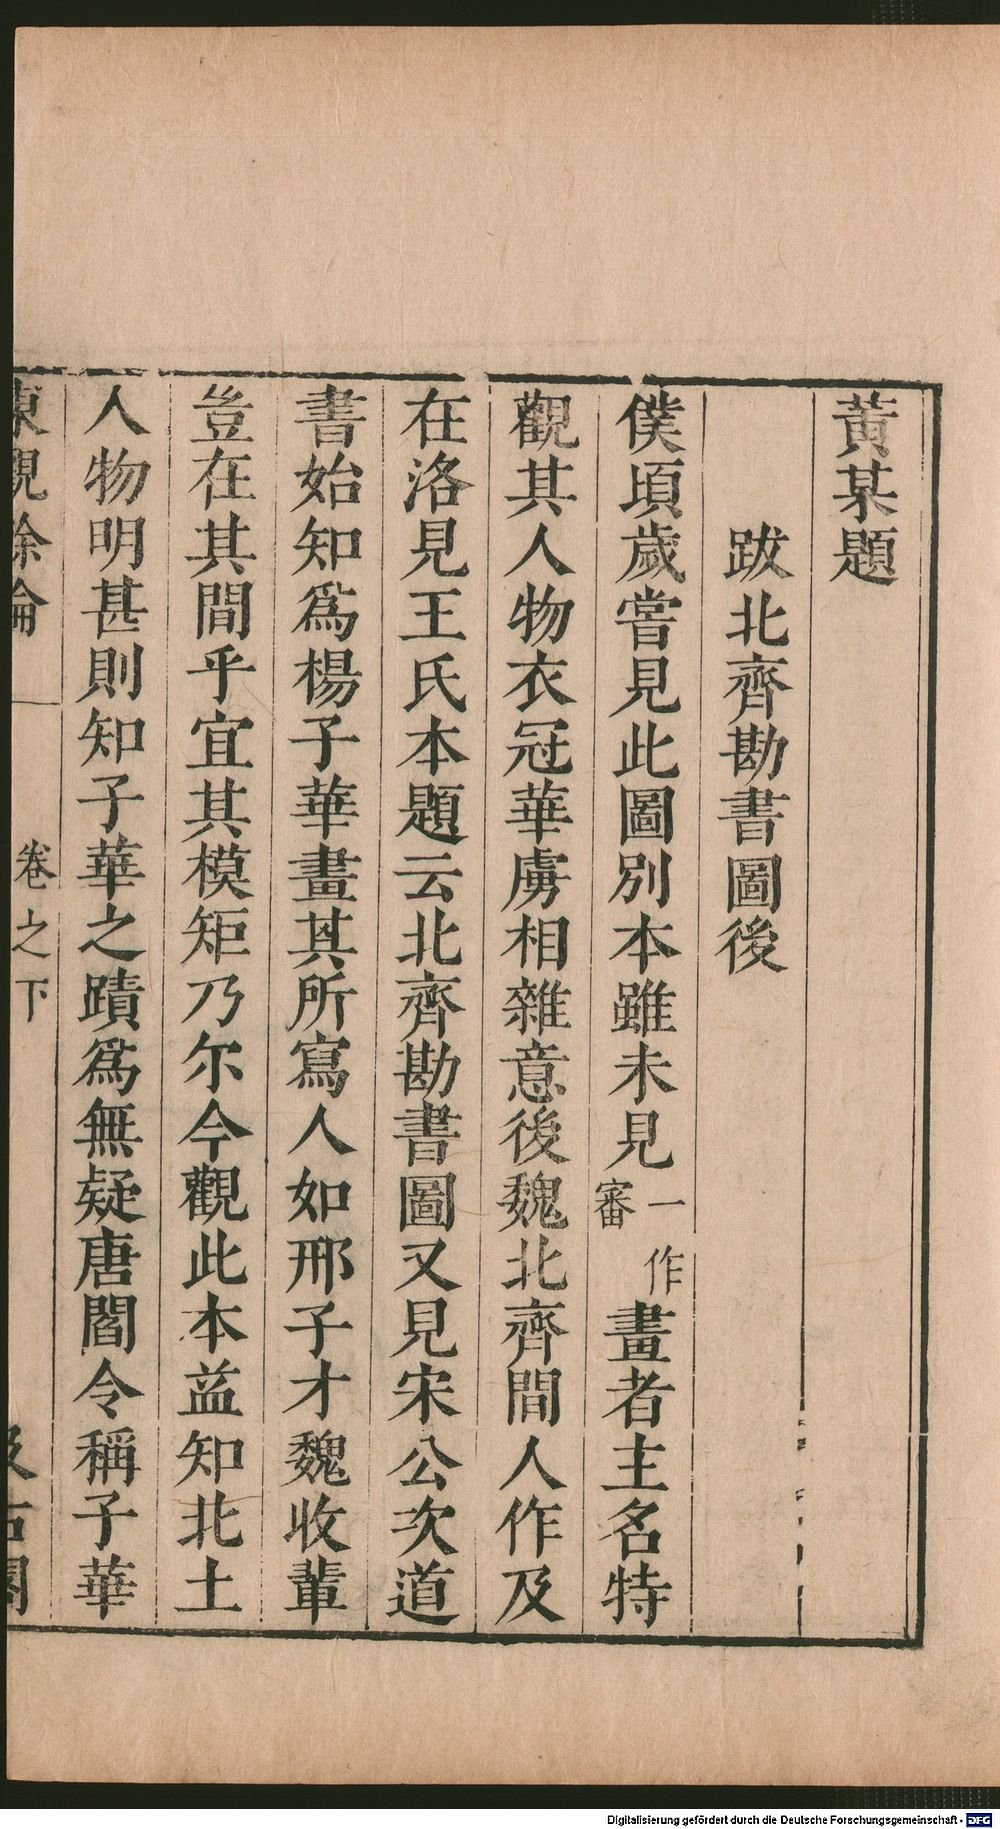 黃某題
跋北齊勘書圖後
僕頃歲嘗見此圖別本雖未見一作審畫者主名特
觀其人物衣冠華虜相雜意後魏北齊間人作及
在洛見王氏本題云北齊勘書圖又見宋公次道
書始知爲楊子華畫其所寫人如邢子才魏收輩
豈在其間乎宜其模矩乃尔今觀此本益知北土
人物明甚則知子華之蹟爲無疑唐閻令稱子華
東觀餘論 卷之下 汲古閣
Digitalisierung gefördert durch die Deutsche Forschungsgemeinschaft - DFG